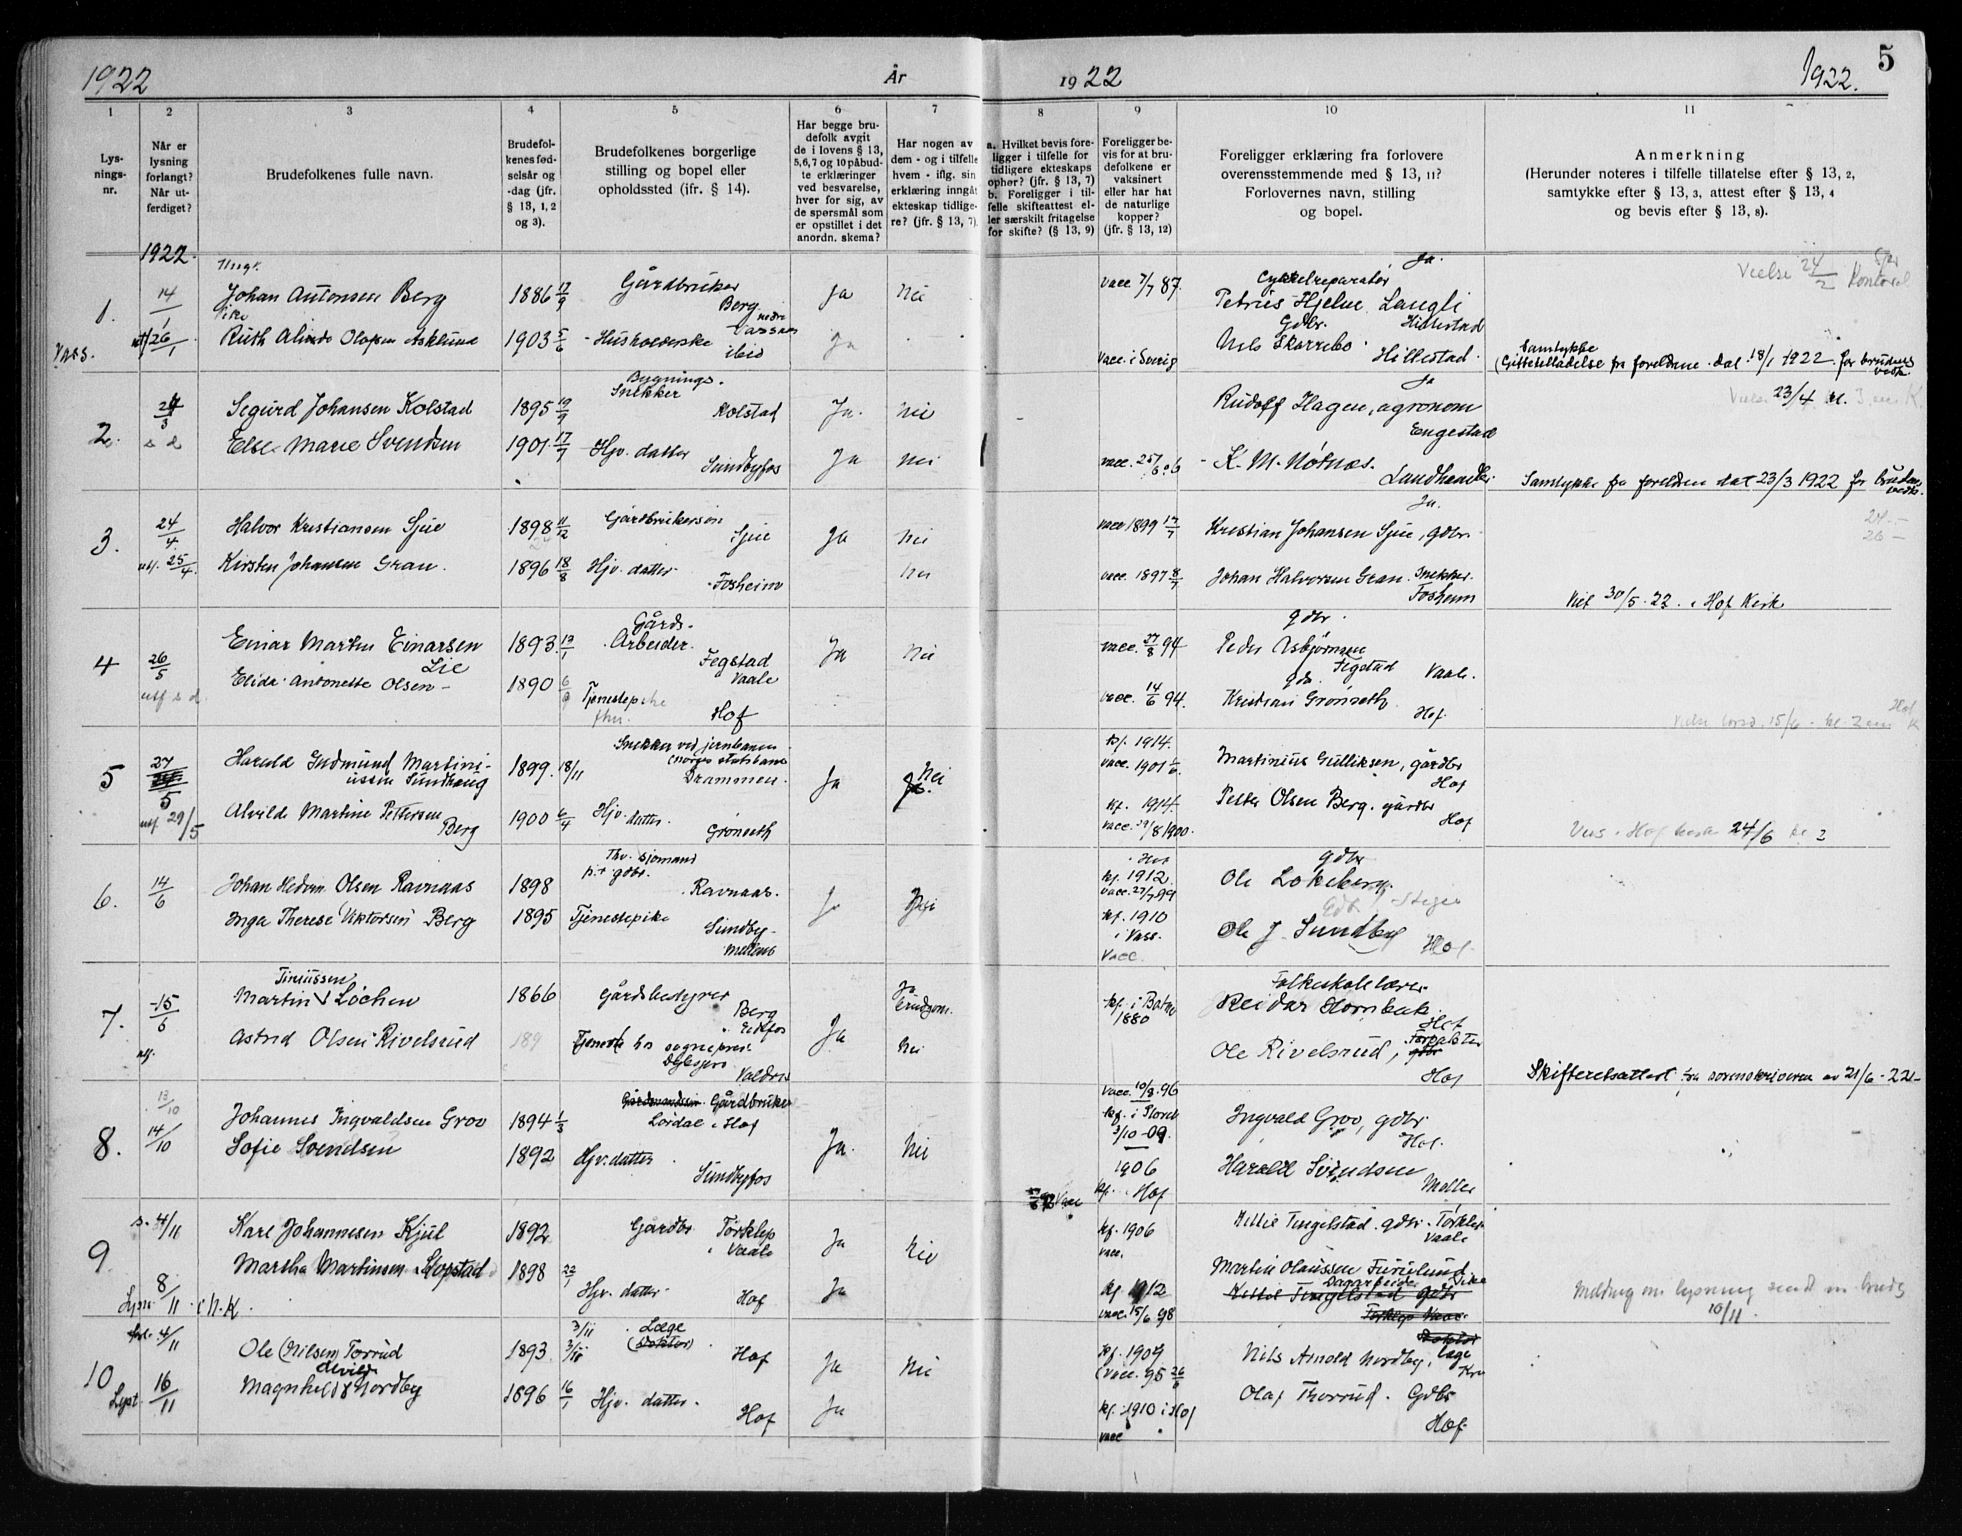 1922
År
1922
1922.
5
1
2
3
4
5
6
7
8
9
10
11
Lys-
nings-
nr.
Når er
lysning
forlangt?
Når ut-
ferdiget?
Brudefolkenes fulle navn.
Brudefol-
kenes fød-
selsår og
-dag (jfr.
§ 13, 1, 2
og 3).
Brudefolkenes borgerlige
stilling og bopel eller
opholdssted (jfr. § 14).
Har begge bru-
defolk avgit
de i lovens § 13,
5,6,7 og 10 påbud-
te erklæringer
ved besvarelse,
hver for sig, av
de spørsmål som
er opstillet i det
anordn. skema?
Har nogen av
dem - og i tilfelle
hvem - iflg. sin
erklæring inngåt
ekteskap tidlige-
re? (jfr. § 13, 7).
a. Hvilket bevis fore-
ligger i tilfelle for
tidligere ekteskaps
ophør? (jfr. § 13, 7)
b. Foreligger i til-
felle skifteattest el-
ler særskilt fritagelse
for skifte? (§ 13, 9)
Foreligger be-
vis for at bru-
defolkene er
vaksinert
eller har hat
de naturlige
kopper?
(jfr. § 13, 12)
Foreligger erklæring fra forlovere
overensstemmende med § 13, 11?
Forlovernes navn, stilling
og bopel.
Anmerkning
(Herunder noteres i tilfelle tillatelse efter § 13, 2,
samtykke efter § 13, 3, attest efter § 13, 4
og bevis efter § 13, 8).
1922.
Vass.
1. 14/1 Ungk. Johan Antonsen Berg 1886 17/9 Gårdbruker Berg nedre Vassaas Ja Nei vacc 7/7 87. Ja.
Cykkelreparatør
Petrus Hjelm Langli
Hillestad
Vielse 24/2 Kontoret
utf 26/1 Pike Ruth Olafsen Asklund 1903 5/6 - Husholderske ibid Ja Vacc. i Sverig Gdbr.
Nils Skarrebo Hillestad.
Samtykke
(Giftetilladelse fra foreldrene dat 18/1 1922 for brudens vedk.
2. Sigurd Johansen Kolstad 1895 19/9 Bygnings-
Snekker Kolstad Ja. Nei Ja
Rudolf Hagen, agronom
Engestad
23/4 kl. 3
s d Else Marie Svendsen 1901. 17/7 - Hjv. datter Sundbyfos Ja Nei - K. M. Nøtnæs.
Landhandler
Samtykke fra foreldrene dat 23/3 1922 for brudens vedk.
3. 24/4 Halvor Kristiansen Sjue 1898 11/12 Gårdbrukersøn Sjue Ja Nei vacc 1899 17/7 Ja.
Kristian Johansen Sjue, gdbr.
24 -
26 -
utf. 25/4. Kirsten Johansen Gran. 1896 18/8 Hjv. datter Fosheim Nei vacc. 1897 8/7 Johan Halvorsen Gran. Snekker.
Fosheim
Viet 30/5. 22. i Hof Kirk
4 26/5 Einar Martin Einarsen Lie 1893. Gårds-
Arbeider. Fegstad Vaale Ja Nei vacc. 27/8 94 gdbr.
Peder Asbjørnsen
Fegstad Vaale.
utf s d. Elida Antonette Olsen - 1890 6/9 Tjenestepike Hof vacc. 14/6 94. gdb.
Kristian Grønseth
Hof.
15/6 - kl. 2 em Hof K
5 27/5 Harald Gudmund Martini-
ussen Sundhaug 1899. 18/11 Snekker ved jernbanen
(norges statsbane
Drammen. Ja Nei kf. 1914.
vacc. 1901 Martinius Gulliksen, gårdbr
Hof
utf 29/5 Alvilde Martine Pettersen
Berg 1900 6/4 Hjv. datter. Grønseth kf. 1914.
vacc. 29/8 1900. Petter Olsen Berg. gårdbr
Hof
Vies i Hof kirke 24/6 kl 2
6. 14/6 Johan Olsen Ravnaas 1898 sjømand
gdbr. Ravnaas. Ja Nei i Hof
kf. 1912.
vacc. 27/7 99 gdbr
Ole Løkeberg
Inga Therese Viktorsen Berg 1895 Tjenestepike Sundby-
mellem kf. 1910
i Vass.
Vacc. Gdb.
Ole J. Sundby Hof
7. 15/6 Tinius­sen
Martin Løchen 1866 Gårdsbestyrer Berg
i Eidsfos Ja Ja
brudgom. kf. i
1880 Folkeskolelærer
Reidar Hornbæk
Hof
utf. Astrid Olsen Rivelsrud 189 Tjeneste hos sogneprest
Valdres Nei Ole Rivelsrud, gdbr
Hof
Skifteretsattest fra sorenskriveren av 21/6 - 22 -
8. 13/10 14/10 Johannes Ingvaldsen Grov 1894 1/3 Gårdbruker
i Hof Ja. Nei Vacc. 10/8. 96
kf. i
3/10 - 09. Ingvald Grov, gdbr
Hof.
Sofie Svendsen 1892 Hjv. datter Sundbyfos 1906
kf. Hof Harald Svendsen
Møller
9 4/11 Karl Johannesen Kjul 1892 Gårdbr Torklep
i Vaale Ja Nei kf. 1906
vacc. Kittil Tingelstad. gdbr. Torklep
Vaale
8/11 Martha Martinsen Kopstad 1898 22/1 Hjv. datter. Hof Ja kf. 1912
vacc. 15/6 98 Martin Olaussen Furulund
Dagarbeider
Kittil Tingelstad gdbr
Torklep Vaale
Melding om lysning sendt
10/11.
10 4/11 Ole (Nilsen) Torrud 1893 3/11 Læge
(Doktor) Hof Ja Nei kf. 1907
(Vacc. 95 26/6 Nils Arnold Nordby, læge
Kra
Lyst. 16/11 Alvilde
Magnhild Nordby 1896 16/1 Hjv. datter. Hof Ja kf. 1910 i Hof
vacc Olaf Thorrud. Gdbr
Hof